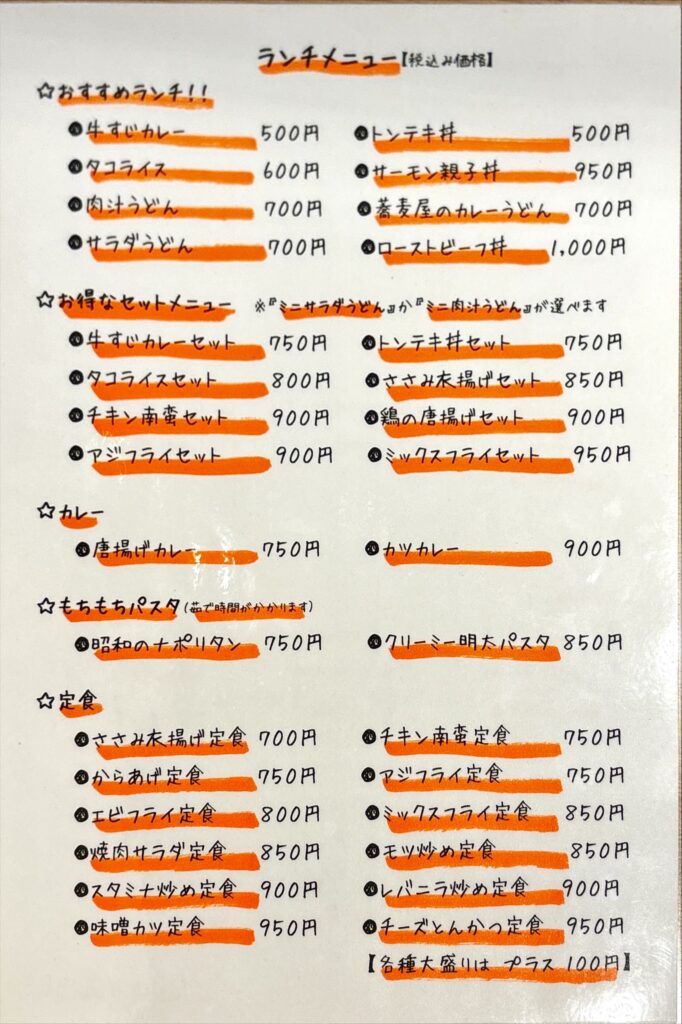 ランチメニュー【税込み価格】
☆おすすめランチ!!
●牛すじカレー 500円 ●トンテキ丼 500円
●タコライス 600円 ●サーモン親子丼 950円
●肉汁うどん 700円 ●蕎麦屋のカレーうどん 700円
●サラダうどん 700円 ●ローストビーフ丼 1,000円
☆お得なセットメニュー ※『ミニサラダうどん』か『ミニ肉汁うどん』が選べます
●牛すじカレーセット 750円 ●トンテキ丼セット 750円
●タコライスセット 800円 ●ささみ衣揚げセット 850円
●チキン南蛮セット 900円 ●鶏の唐揚げセット 900円
●アジフライセット 900円 ●ミックスフライセット 950円
☆カレー
●唐揚げカレー 750円 ●カツカレー 900円
☆もちもちパスタ(茹で時間がかかります)
●昭和のナポリタン 750円 ●クリーミー明太パスタ 850円
☆定食
●ささみ衣揚げ定食 700円 ●チキン南蛮定食 750円
●からあげ定食 750円 ●アジフライ定食 750円
●エビフライ定食 800円 ●ミックスフライ定食 850円
●焼肉サラダ定食 850円 ●モツ炒め定食 850円
●スタミナ炒め定食 900円 ●レバニラ炒め定食 900円
●味噌カツ定食 950円 ●チーズとんかつ定食 950円
【各種大盛りは プラス 100円】